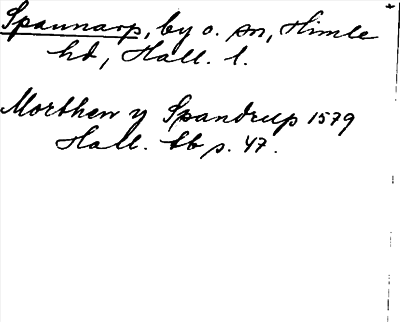 Spannarp, by o. sn, Himle
hd, Hall. l.
Morthen y Spandrup 1579
Hall. tb s. 47.